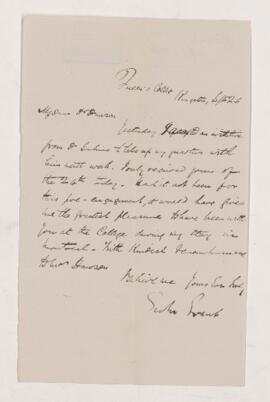 Queen's College
Kingston, Sept 26
My dear Dr Dawson
Yesterday I accepted an invitation
from Dr Jenkins to take up my quarters with
him next week. I only received yours of
the 24th today. Had it not been for
this pre-engagement, it would have given
me the greatest pleasure to have been with
you at the College during my stay in
Montreal. With kindest remembrances
to Mrs Dawson
Believe me Yours Ever truly
Grant